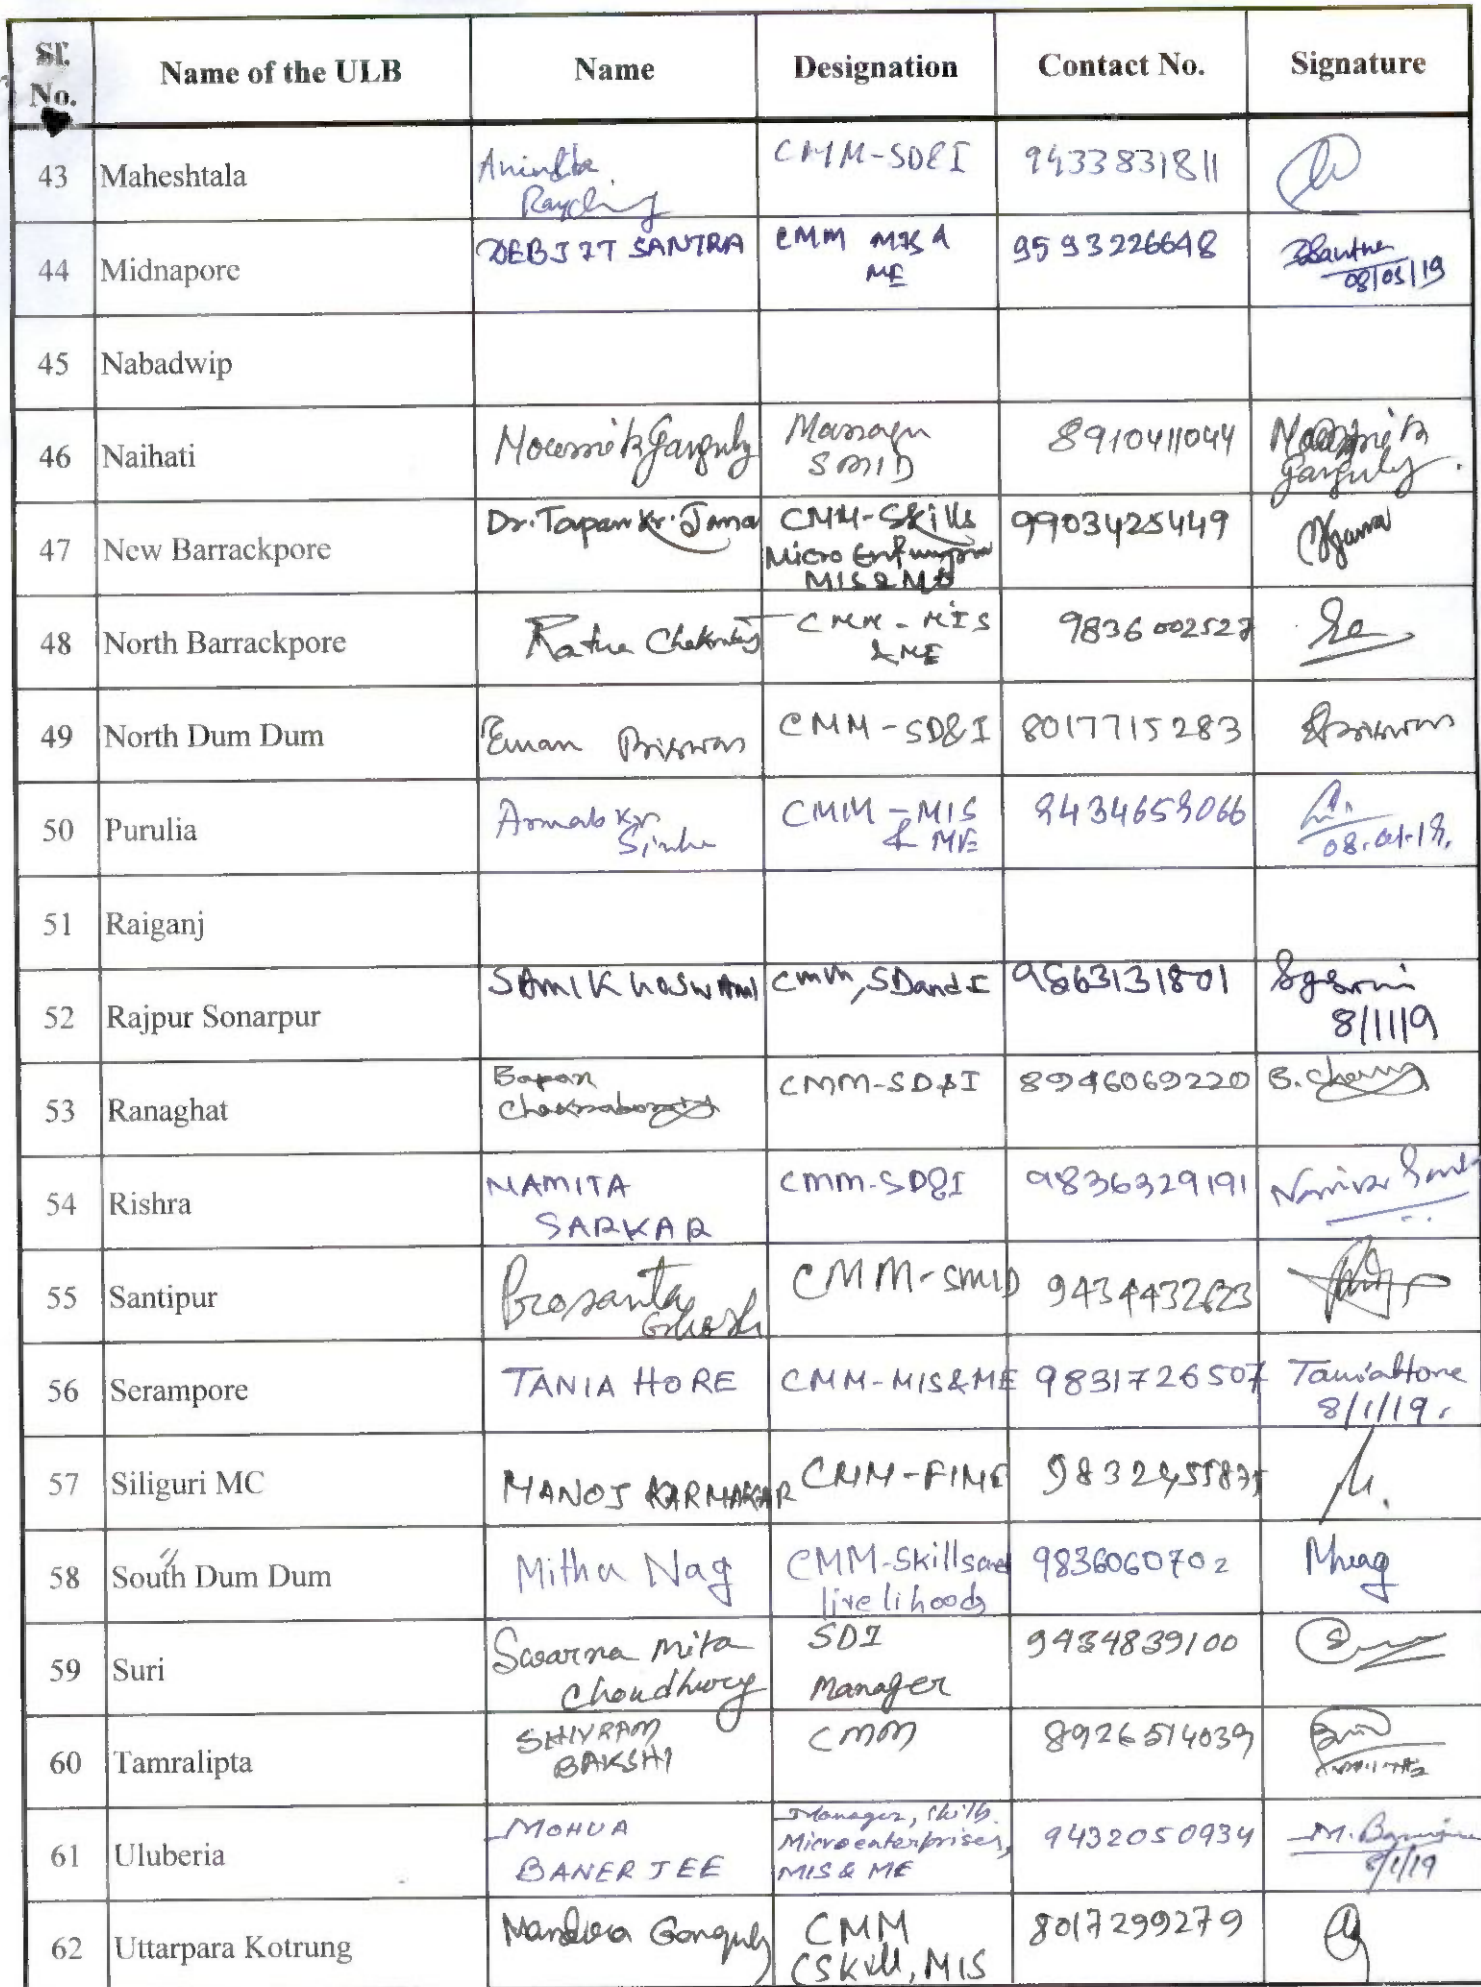 Sl. No. Name of the ULB Name Designation Contact No. Signature
43 Maheshtala CMM-SD&I 9433831811
44 Midnapore DEBJIT SANTRA CMM MIS & ME 9593226648 08/01/19
45 Nabadwip
46 Naihati Ganguly Manager SMID 8910411044 Ganguly
47 New Barrackpore Dr. Tapan Kr. Jana CMM-Skills Micro MIS & ME 9903425449
48 North Barrackpore Ratna CMM-MIS & ME 9836002527
49 North Dum Dum Eman Biswas CMM-SD&I 8017715283
50 Purulia Arnab Kr. Sinha CMM-MIS & ME 9434659066
51 Raiganj
52 Rajpur Sonarpur CMM, SD and I 9563131801 8/1/19
53 Ranaghat Bapan Chakraborty CMM-SD&I 8946069220
54 Rishra NAMITA SARKAR CMM-SD&I 9836329191
55 Santipur Prosanta Ghosh CMM-SMID 9434432623
56 Serampore TANIA HORE CMM-MIS&ME 9831726507 Tania Hore 8/1/19.
57 Siliguri MC MANOJ KARMAKAR CMM-FIME 9832455875
58 South Dum Dum Mitha Nag CMM-Skills and livelihoods 9836060702 MNag
59 Suri Swarna Mita Choudhury SDI Manager 9434839100
60 Tamralipta SHIVRAM BAKSHI CMM 8926514039
61 Uluberia MOHUA BANERJEE Manager, Skills. Microenterprises, MIS & ME 9432050934 8/1/19
62 Uttarpara Kotrung CMM CSkill, MIS 8017299279